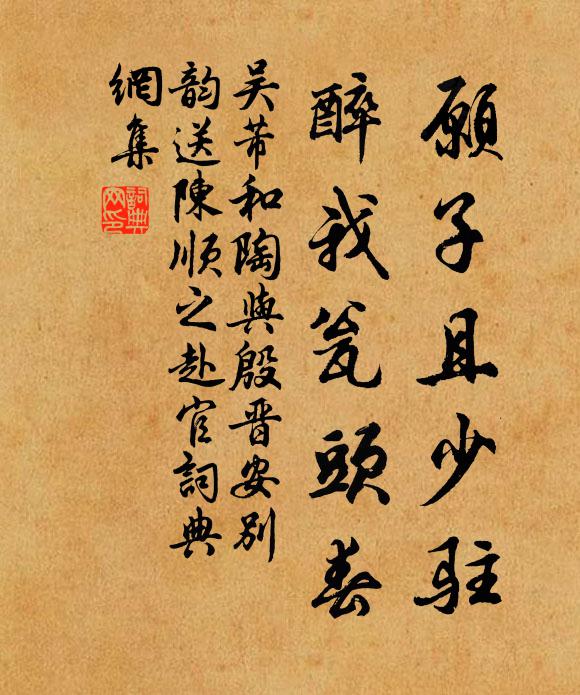 願子且少駐
醉我瓮頭春
吴芾和陶與殷晋安别
韵送陳順之赴官詞典
網集
詞典
网印